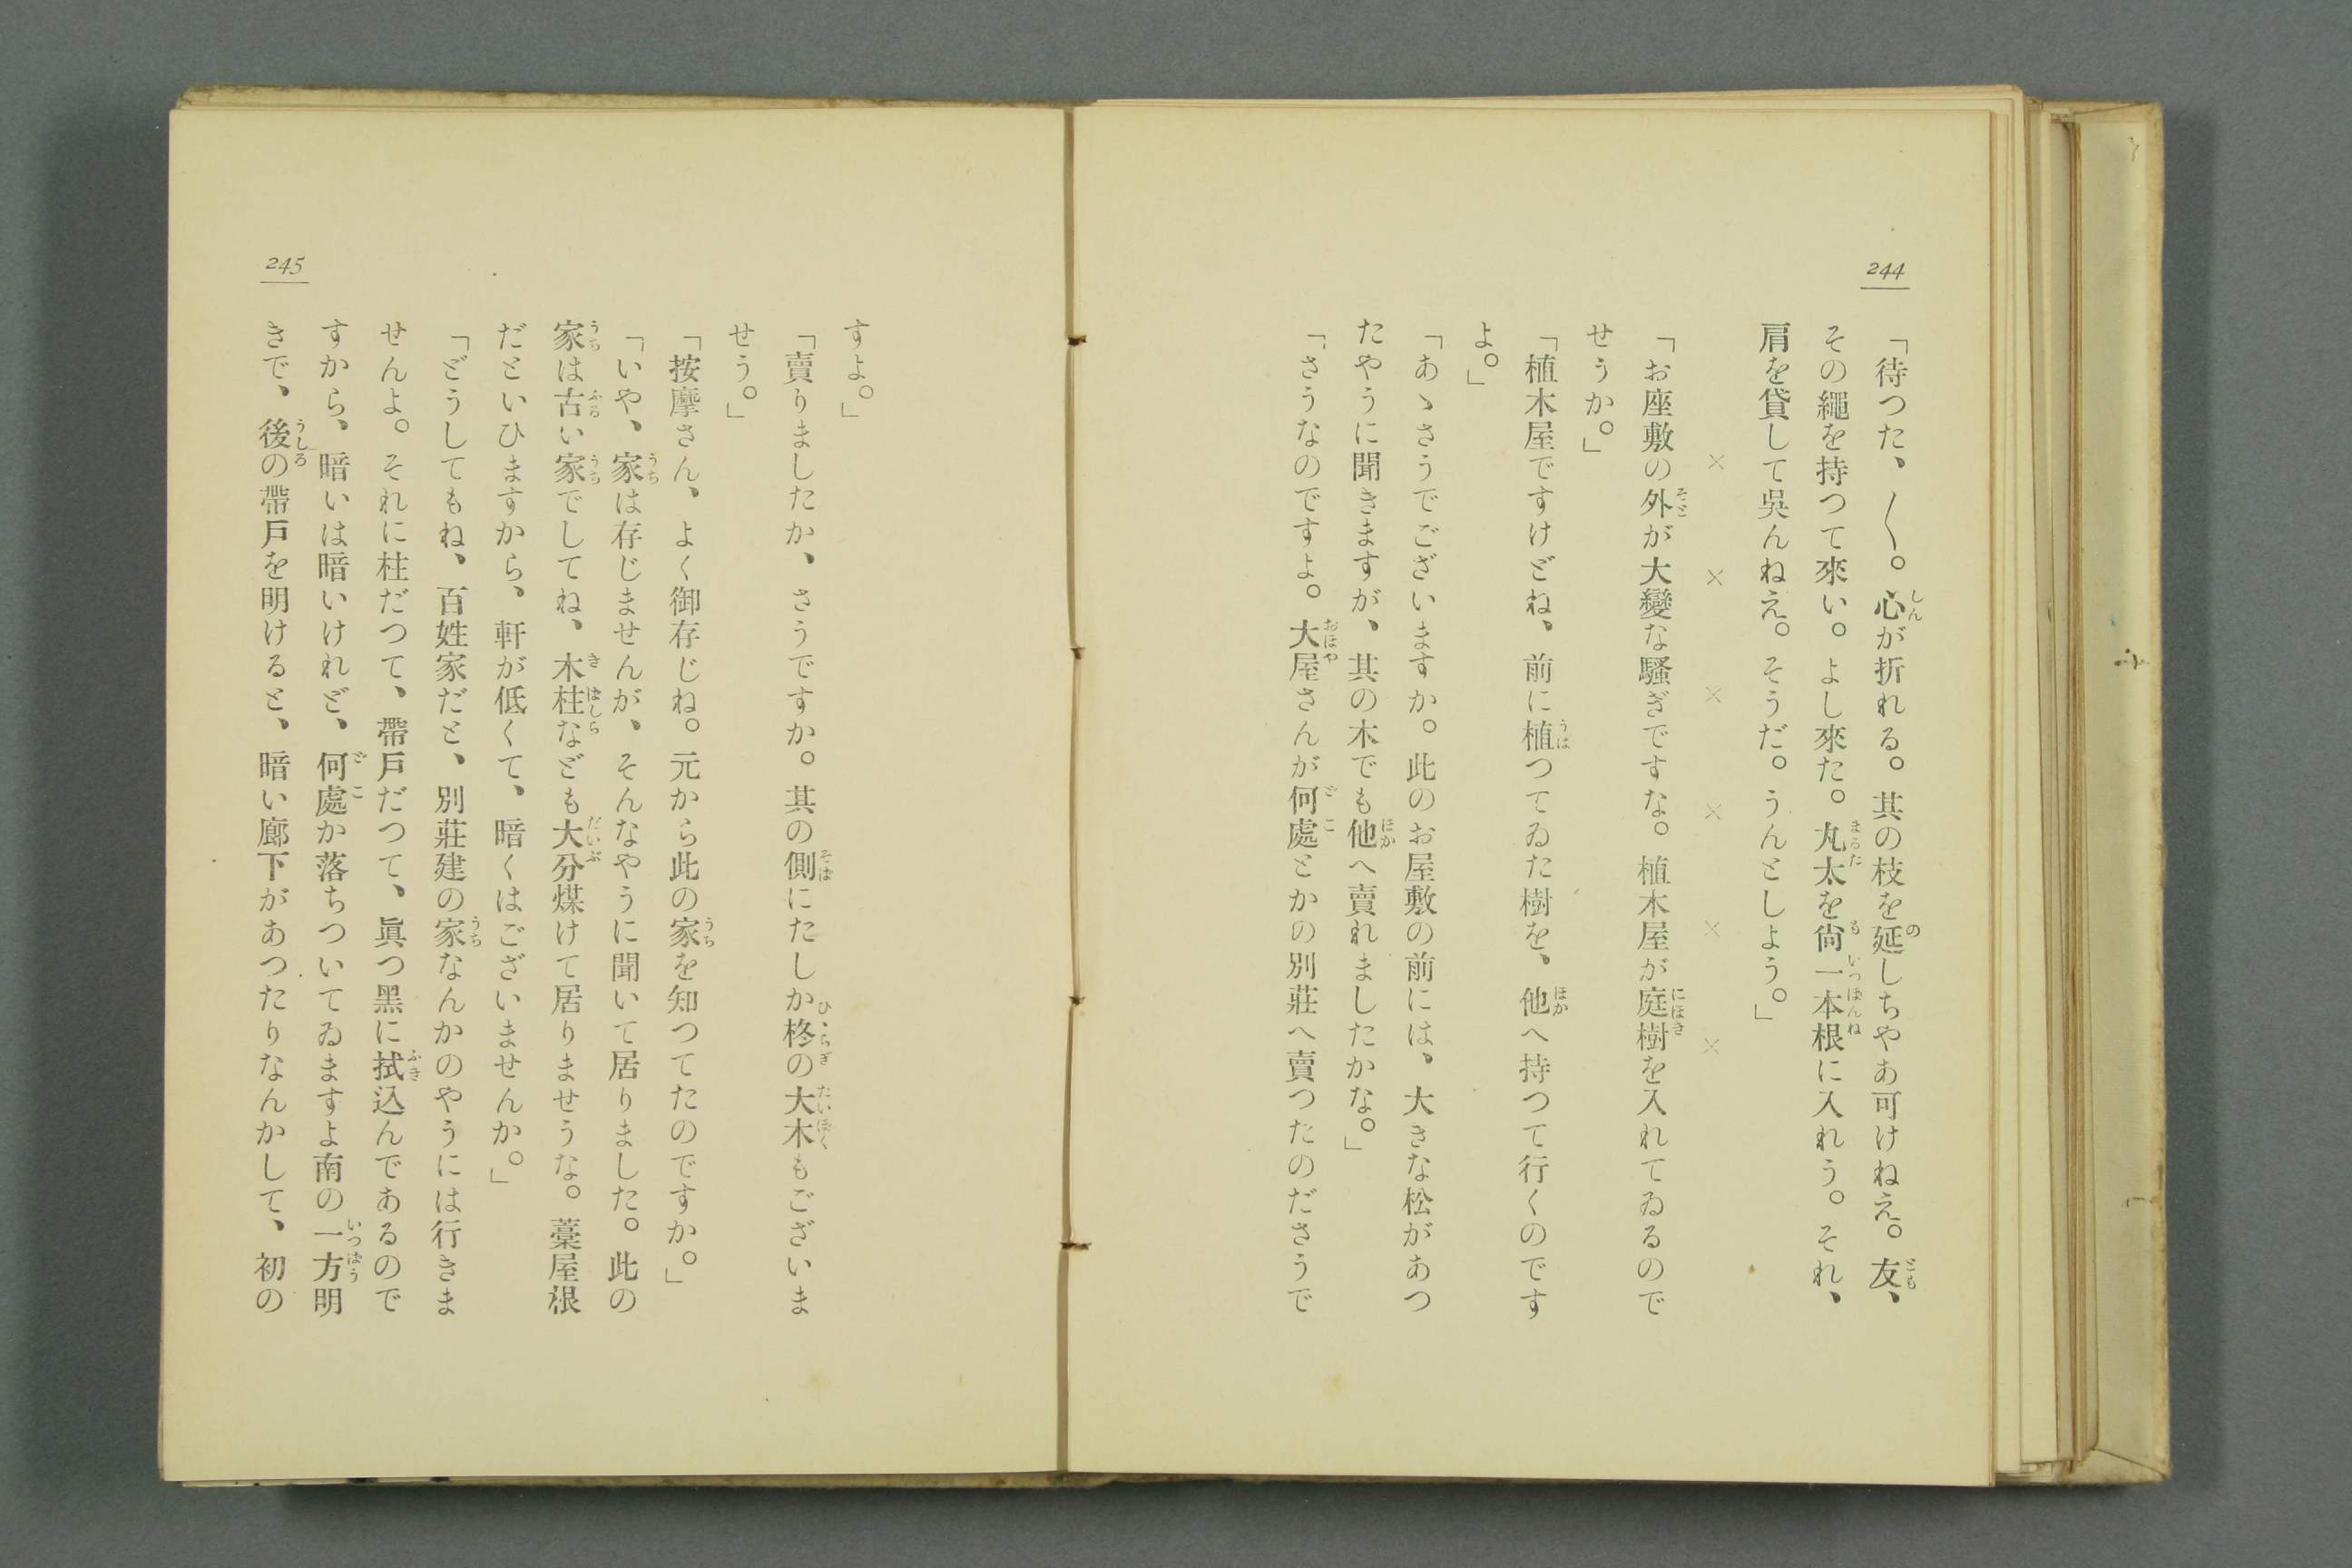 244
「待つた、〱。心が折れる。其の枝を延しちやあ可けねえ。友、
その繩を持つて來い。よし來た。丸太を尙一本根に入れう。それ、
肩を貸して吳んねえ。そうだ。うんとしよう。」
× × × × × ×
「お座敷の外が大變な騷ぎですな。植木屋が庭樹を入れてゐるので
せうか。」
「植木屋ですけどね、前に植つてゐた樹を、他へ持つて行くのです
よ。」
「あゝさうでございますか。此のお屋敷の前には、大きな松があつ
たやうに聞きますが、其の木でも他へ賣れましたかな。」
「さうなのですよ。大屋さんが何處とかの別莊へ賣つたのださうで
すよ。」
「賣りましたか、さうですか。其の側にたしか柊の大木もございま
せう。」
「按摩さん、よく御存じね。元から此の家を知つてたのですか。」
「いや、家は存じませんが、そんなやうに聞いて居りました。此の
家は古い家でしてね、木柱なども大分煤けて居りませうな。藁屋根
だといひますから、軒が低くて、暗くはございませんか。」
「どうしてもね、百姓家だと、別莊建の家なんかのやうには行きま
せんよ。それに柱だつて、帶戶だつて、眞つ黑に拭込んであるので
すから、暗いは暗いけれど、何處か落ちついてゐますよ南の一方明
きで、後の帶戶を明けると、暗い廊下があつたりなんかして、初の
245